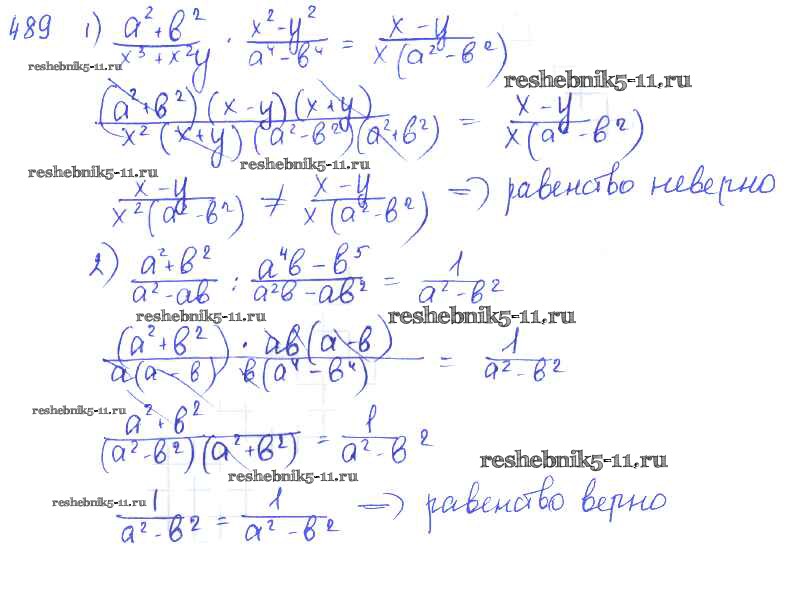 489 1) (a² + b²)/(x³ + x²y) · (x² - y²)/(a⁴ - b⁴) = (x - y)/(x(a² - b²))
reshebnik5-11.ru
reshebnik5-11.ru
((a² + b²)(x - y)(x + y))/(x²(x + y)(a² - b²)(a² + b²)) = (x - y)/(x(a² - b²))
reshebnik5-11.ru
reshebnik5-11.ru
(x - y)/(x²(a² - b²)) ≠ (x - y)/(x(a² - b²)) => равенство неверно
2) (a² + b²)/(a² - ab) : (a⁴b - b⁵)/(a²b - ab²) = 1/(a² - b²)
reshebnik5-11.ru
reshebnik5-11.ru
((a² + b²) · ab(a - b))/(a(a - b) b(a⁴ - b⁴)) = 1/(a² - b²)
reshebnik5-11.ru
(a² + b²)/((a² - b²)(a² + b²)) = 1/(a² - b²)
reshebnik5-11.ru
reshebnik5-11.ru
reshebnik5-11.ru
1/(a² - b²) = 1/(a² - b²) => равенство верно